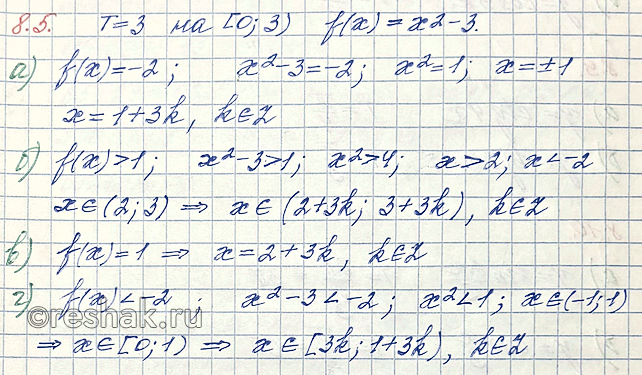 8.5. T=3 на [0; 3) f(x) = x2-3.
а) f(x)=-2; x²-3=-2; x²=1; x=±1
x=1+3k, k∈Z
б) f(x)>1; x²-3>1; x²>4; x>2; x<-2
x∈(2; 3) ⇒ x∈(2+3k; 3+3k), k∈Z
в) f(x)=1 ⇒ x=2+3k, k∈Z
г) f(x)<-2; x²-3<-2; x²<1; x∈(-1; 1)
©reshak.ru
⇒ x∈[0; 1) ⇒ x∈[3k; 1+3k), k∈Z